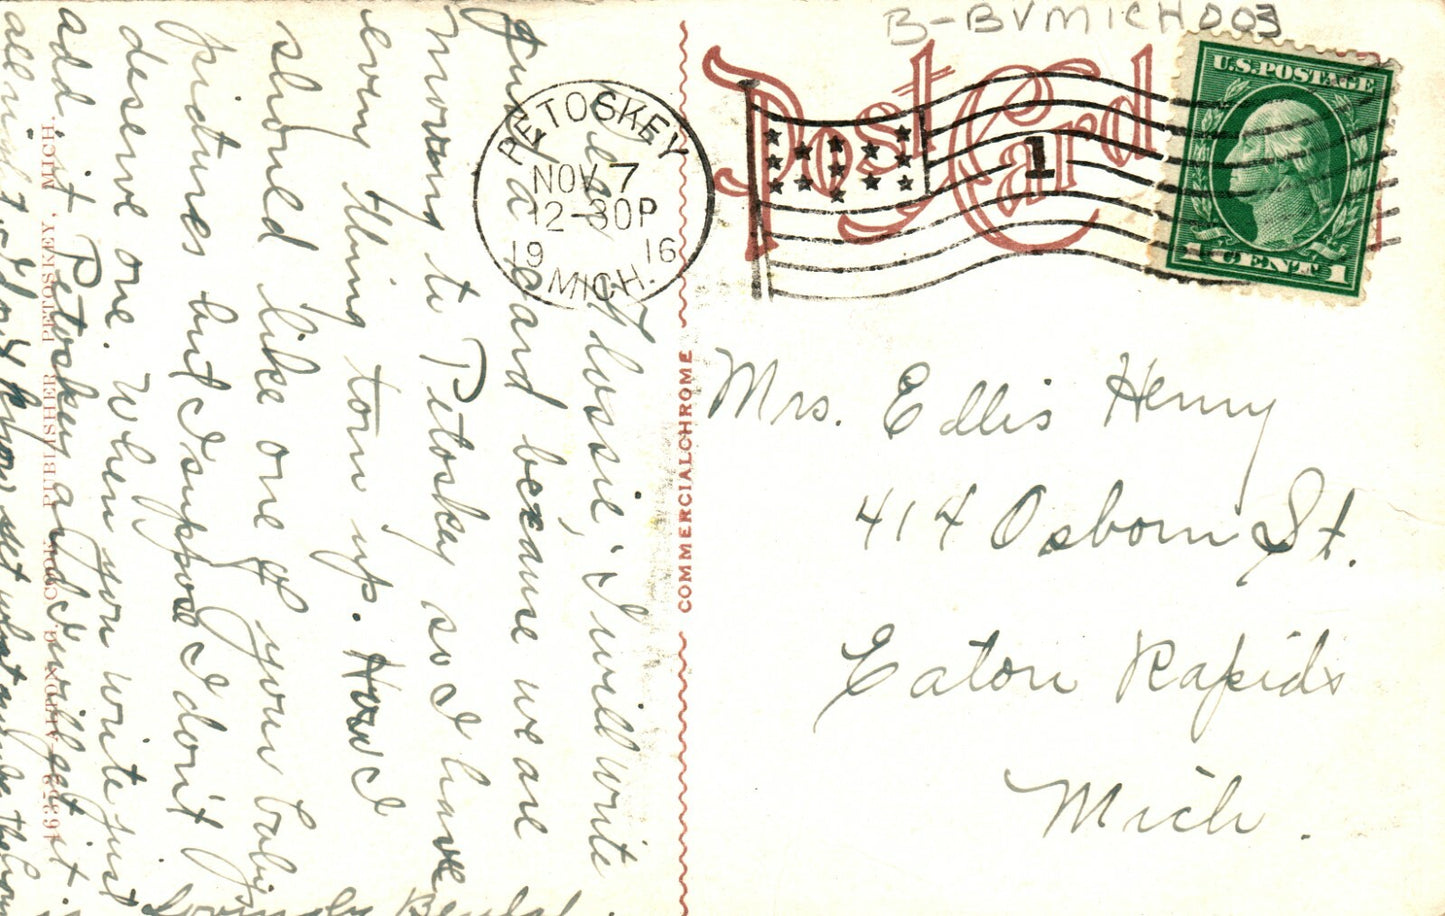 B-BVMICH003
Post Card
U.S. POSTAGE
1 CENT 1
PETOSKEY
NOV 7
12-30P
1916
MICH.
1
Mrs. Ellis Henry
414 Osborn St.
Eaton Rapids
Mich.
COMMERCIALCHROME
PUBLISHER PETOSKEY, MICH.
Dear Flossie, I will write
you a card because we are
moving to Petoskey so I have
every thing torn up. How I
should like one of your baby
pictures but I suppose I don't
deserve one. When you write just
add it Petoskey and I will get it
all right. I don't know yet what
Lovingly